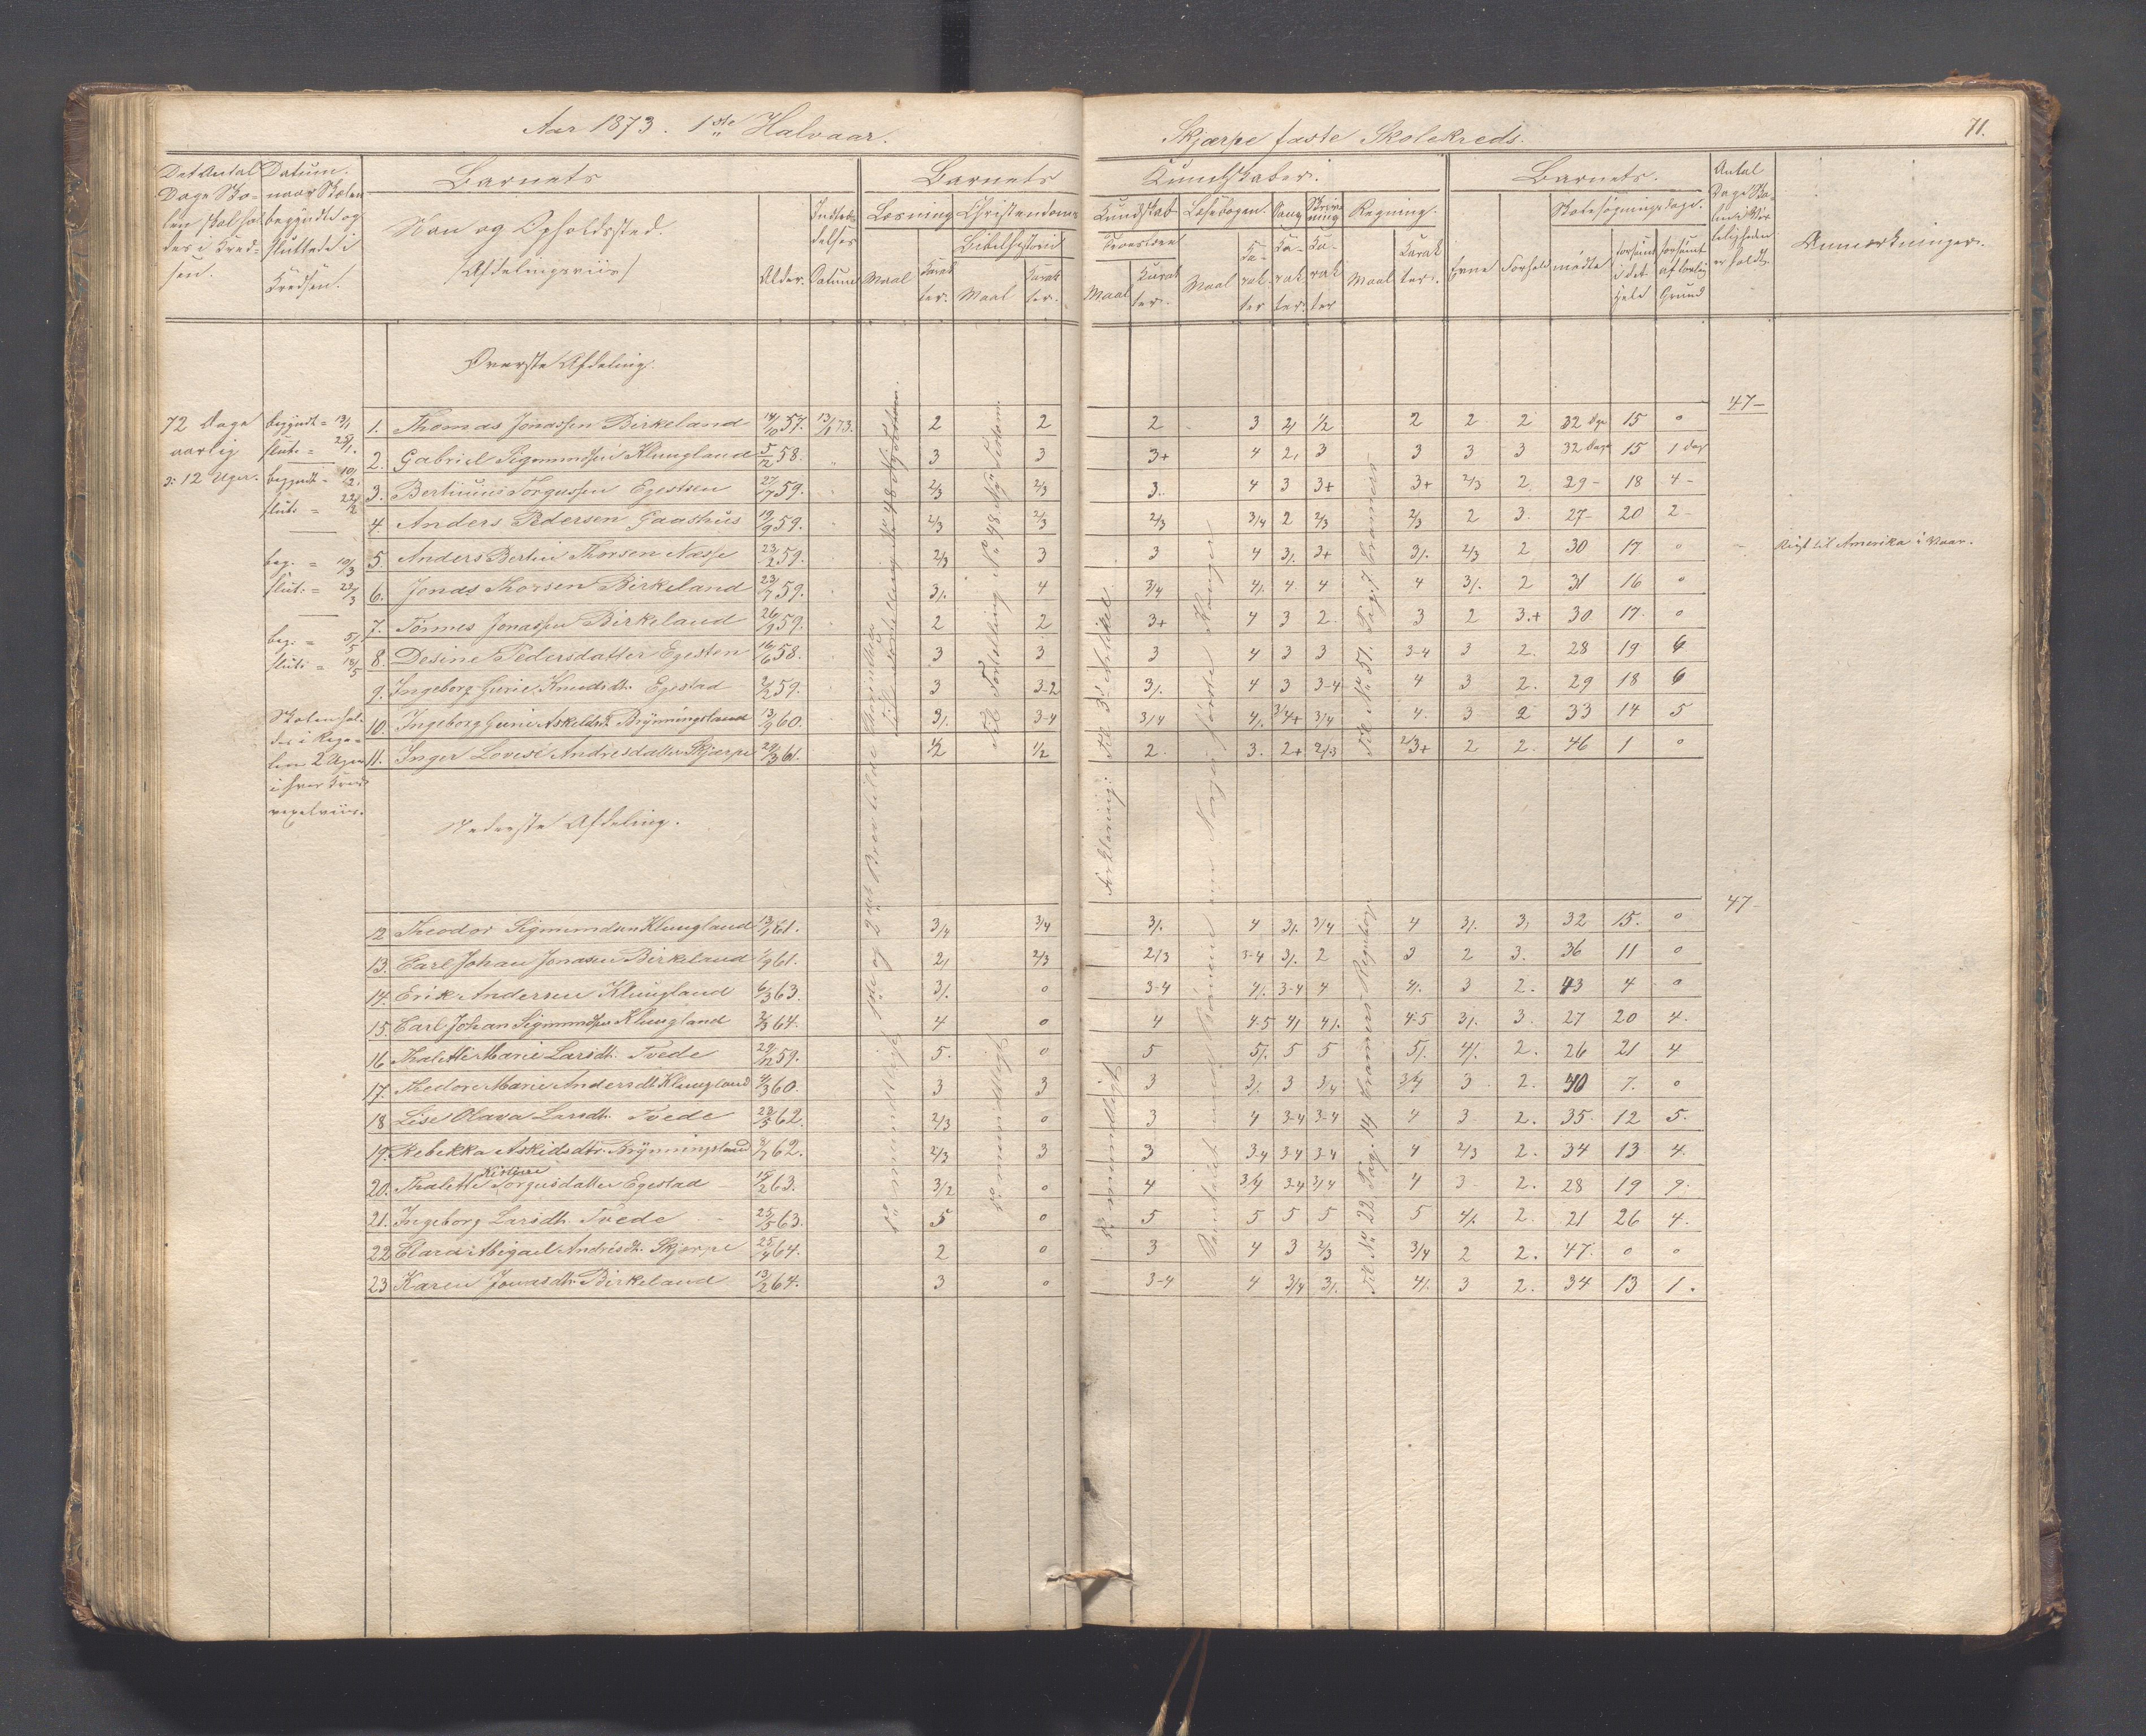 Aar 1873. 1ste Halvaar.
Skjærpe faste Skolekreds.
71.
Det Antal Dage Skolen skal holdes i Kredsen.
Datum. naar Skolen begyndte og sluttede i Kredsen.
Barnets
Navn og Opholdssted.
(Afdelingsviis)
Alder.
Indtrædelses Datum
Barnets
Læsning
Maal
Karakter.
Christendoms
Bibelhistorie
Maal
Karakter.
Kundskaber.
Kundskab
Troeslære
Maal
Karakter.
Læsebogen.
Maal
Karakter
Sang
Karakter.
Skrivning
Karakter
Regning.
Maal
Karakter.
Barnets.
Evne
Forhold
Skolesøgningsdage.
mødte
forsømt i det Hele
forsømt af lovlig Grund
Antal Dage Skolen i Virkeligheden er holdt.
Anmærkninger.
Øverste Afdeling.
47
72 Dage aarlig
ɔ: 12 Uger.
begyndt = 13/1
slut: = 25/1.
begyndt = 10/2.
slut: = 22/2
beg. = 10/3
slut: = 22/3
beg. = 5/5
slut: = 18/5
Skolen holdes i Regelen 2 Uger i hver Kreds vexelviis.
1. Thomas Jonassen Birkeland 14/10 57. 13/1 73. 2 2 2 3 2/ 1/2 2 2 2 32 Dge 15 0
2. Gabriel Sigmundsen Klungland 5/12 58. 3 3 3+ 4 2/ 3 3 3 3 32 Dage 15 1 dag
3. Bertinius Torgussen Egestsen 27/7 59. 2/3 2/3 3. 4 3 3+ 3+ 2/3 2 29 18 4
4. Anders Pedersen Gaashus 19/9 59. 2/3 2/3 2/3 3/4 2 2/3 2/3 2 3. 27 20 2
5. Anders Bertin Thorsen Næsse 23/2 59. 2/3 3 3 4 3/. 3+ 3/. 2/3 2 30 17 0 Reist til Amerika i Vaar.
6. Jonas Thorsen Birkeland 23/7 59. 3/. 4 3/4 4/. 4 4 4 3/. 2 31 16 0
7. Tønnes Jonassen Birkeland 26/9 59. 2 2 3+ 4 3 2. 3 2 3.+ 30 17. 0
8. Desine Pedersdatter Egesten 16/6 58. 3 3 3 4 3 3 3-4 3 2. 28 19 6
9. Ingeborg Gurie Knudsdt. Egestad 2/2 59. 3 3-2 3/. 4 3 3-4 4 3 2. 29 18 6
10. Ingeborg Gurie Askeldsdt. Brynningsland 13/9 60. 3/. 3-4 3/4 4/. 3/4+ 3/4 4. 3 2 33 14 5
11. Inger Lovise Andreasdatter Skjærpe 29/3 61. 1/2 1/2 2. 3. 2+ 2/3 2/3+ 2 2. 46 1 0
Nederste Afdeling.
47
12 Theodor Sigmundsen Klungland 13/1 61. 3/4 3/4 3/. 4 3/. 3/4 4 3/. 3/ 32 15. 0
13. Carl Johan Jonasen Birkeland 1/9 61. 2/ 2/3 2/3 3-4 3/. 2 3 2 3. 36 11 0
14. Erik Andersen Klungland 6/3 63. 3/. 0 3-4 4/. 3-4 4 4/. 3 2. 43 4 0
15. Carl Johan Sigmundsen Klungland 2/3 64. 4 0 4 4-5 4/ 4/. 4-5 3/. 3. 27 20 4.
16 Thalette Marie Larsdt. Tvede 29/12 59. 5. 0 5 5/. 5 5 5/. 4/. 2. 26 21 4
17. Thedore Marie Andersdt Klungland 4/3 60. 3 3 3 3/. 3 3/4 3/4 3 2. 40 7. 0
18 Lise Olava Larsdt. Tvede 22/5 62. 2/3 0 3 4 3-4 3-4 4 3 2. 35. 12 5.
19. Rebekka Askildsdtr. Brynningsland 8/7 62. 2/3 3 3 3-4 3-4 3-4 4 2/3 2. 34 13 4.
20. Thalette Kirstine Torgersdatter Egestad 15/2 63. 3/2 0 4 3/4 3-4 3/4 4 3 2. 28 19 9.
21. Ingeborg Larsdt. Tvede 25/5 63. 5 0 5 5 5 5 5 4/. 2. 21 26 4.
22 Clara Abigael Andrisdt. Skjærpe 25/4 64. 2 0 3 4 3 2/3 3/4 2 2. 47. 0 0
23 Karen Jonasdtr. Birkeland 13/2 64. 3 0 3-4 4 3/4 3/. 4/. 3 2. 34 13 1.
Forklaring: Til 3die Artikel.
Til No 51. Pag. 7 Kramers
Til No 22 Pag. 14 Kramers Regnebog